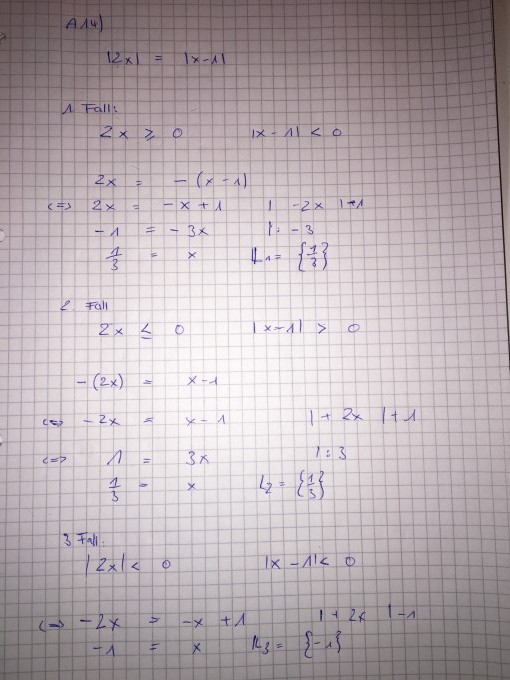 A14)
|2x| = |x-1|
1 Fall:
2x ≥ 0 |x-1| < 0
2x = -(x-1)
<=> 2x = -x+1 | -2x |-1
-1 = -3x |: -3
1/3 = x L1 = {1/3}
2. Fall
2x ≤ 0 |x-1| > 0
-(2x) = x-1
<=> -2x = x-1 |+2x |+1
<=> 1 = 3x |:3
1/3 = x L2 = {1/3}
3 Fall:
|2x| < 0 |x-1| < 0
<=> -2x = -x+1 |+2x |-1
-1 = x L3 = {-1}